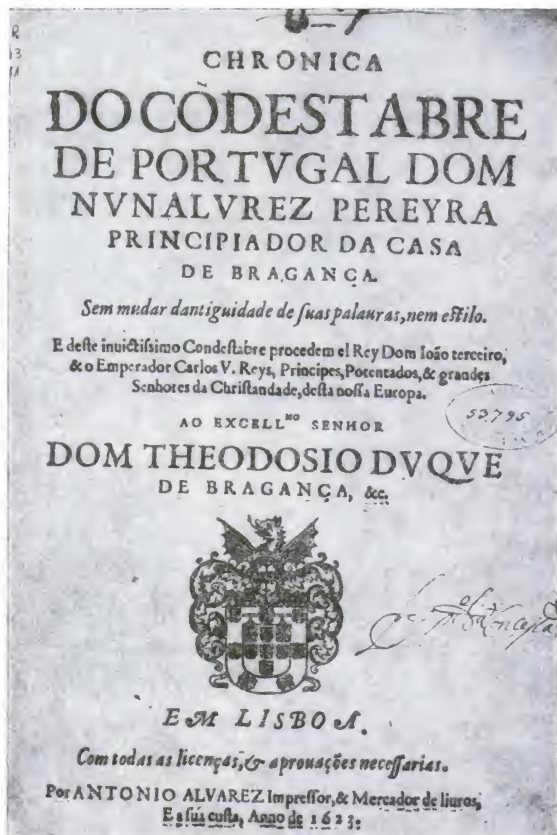 CHRONICA
DO CÒDESTABRE
DE PORTVGAL DOM
NVNALVREZ PEREYRA
PRINCIPIADOR DA CASA
DE BRAGANÇA.
Sem mudar dantiguidade de ſuas palauras, nem eſtilo.
E deſte inuictiſsimo Condeſtabre procedem el Rey Dom Ioão terceiro,
& o Emperador Carlos V. Reys, Principes, Potentados, & grandes
Senhores da Chriſtandade, deſta noſſa Europa.
AO EXCELL.MO SENHOR
DOM THEODOSIO DVQVE
DE BRAGANÇA, &c.
53795
EM LISBOA.
Com todas as licenças, & aprouações neceſſarias.
Por ANTONIO ALVAREZ Impreſſor, & Mercador de liuros,
E a ſua cuſta, Anno de 1623.